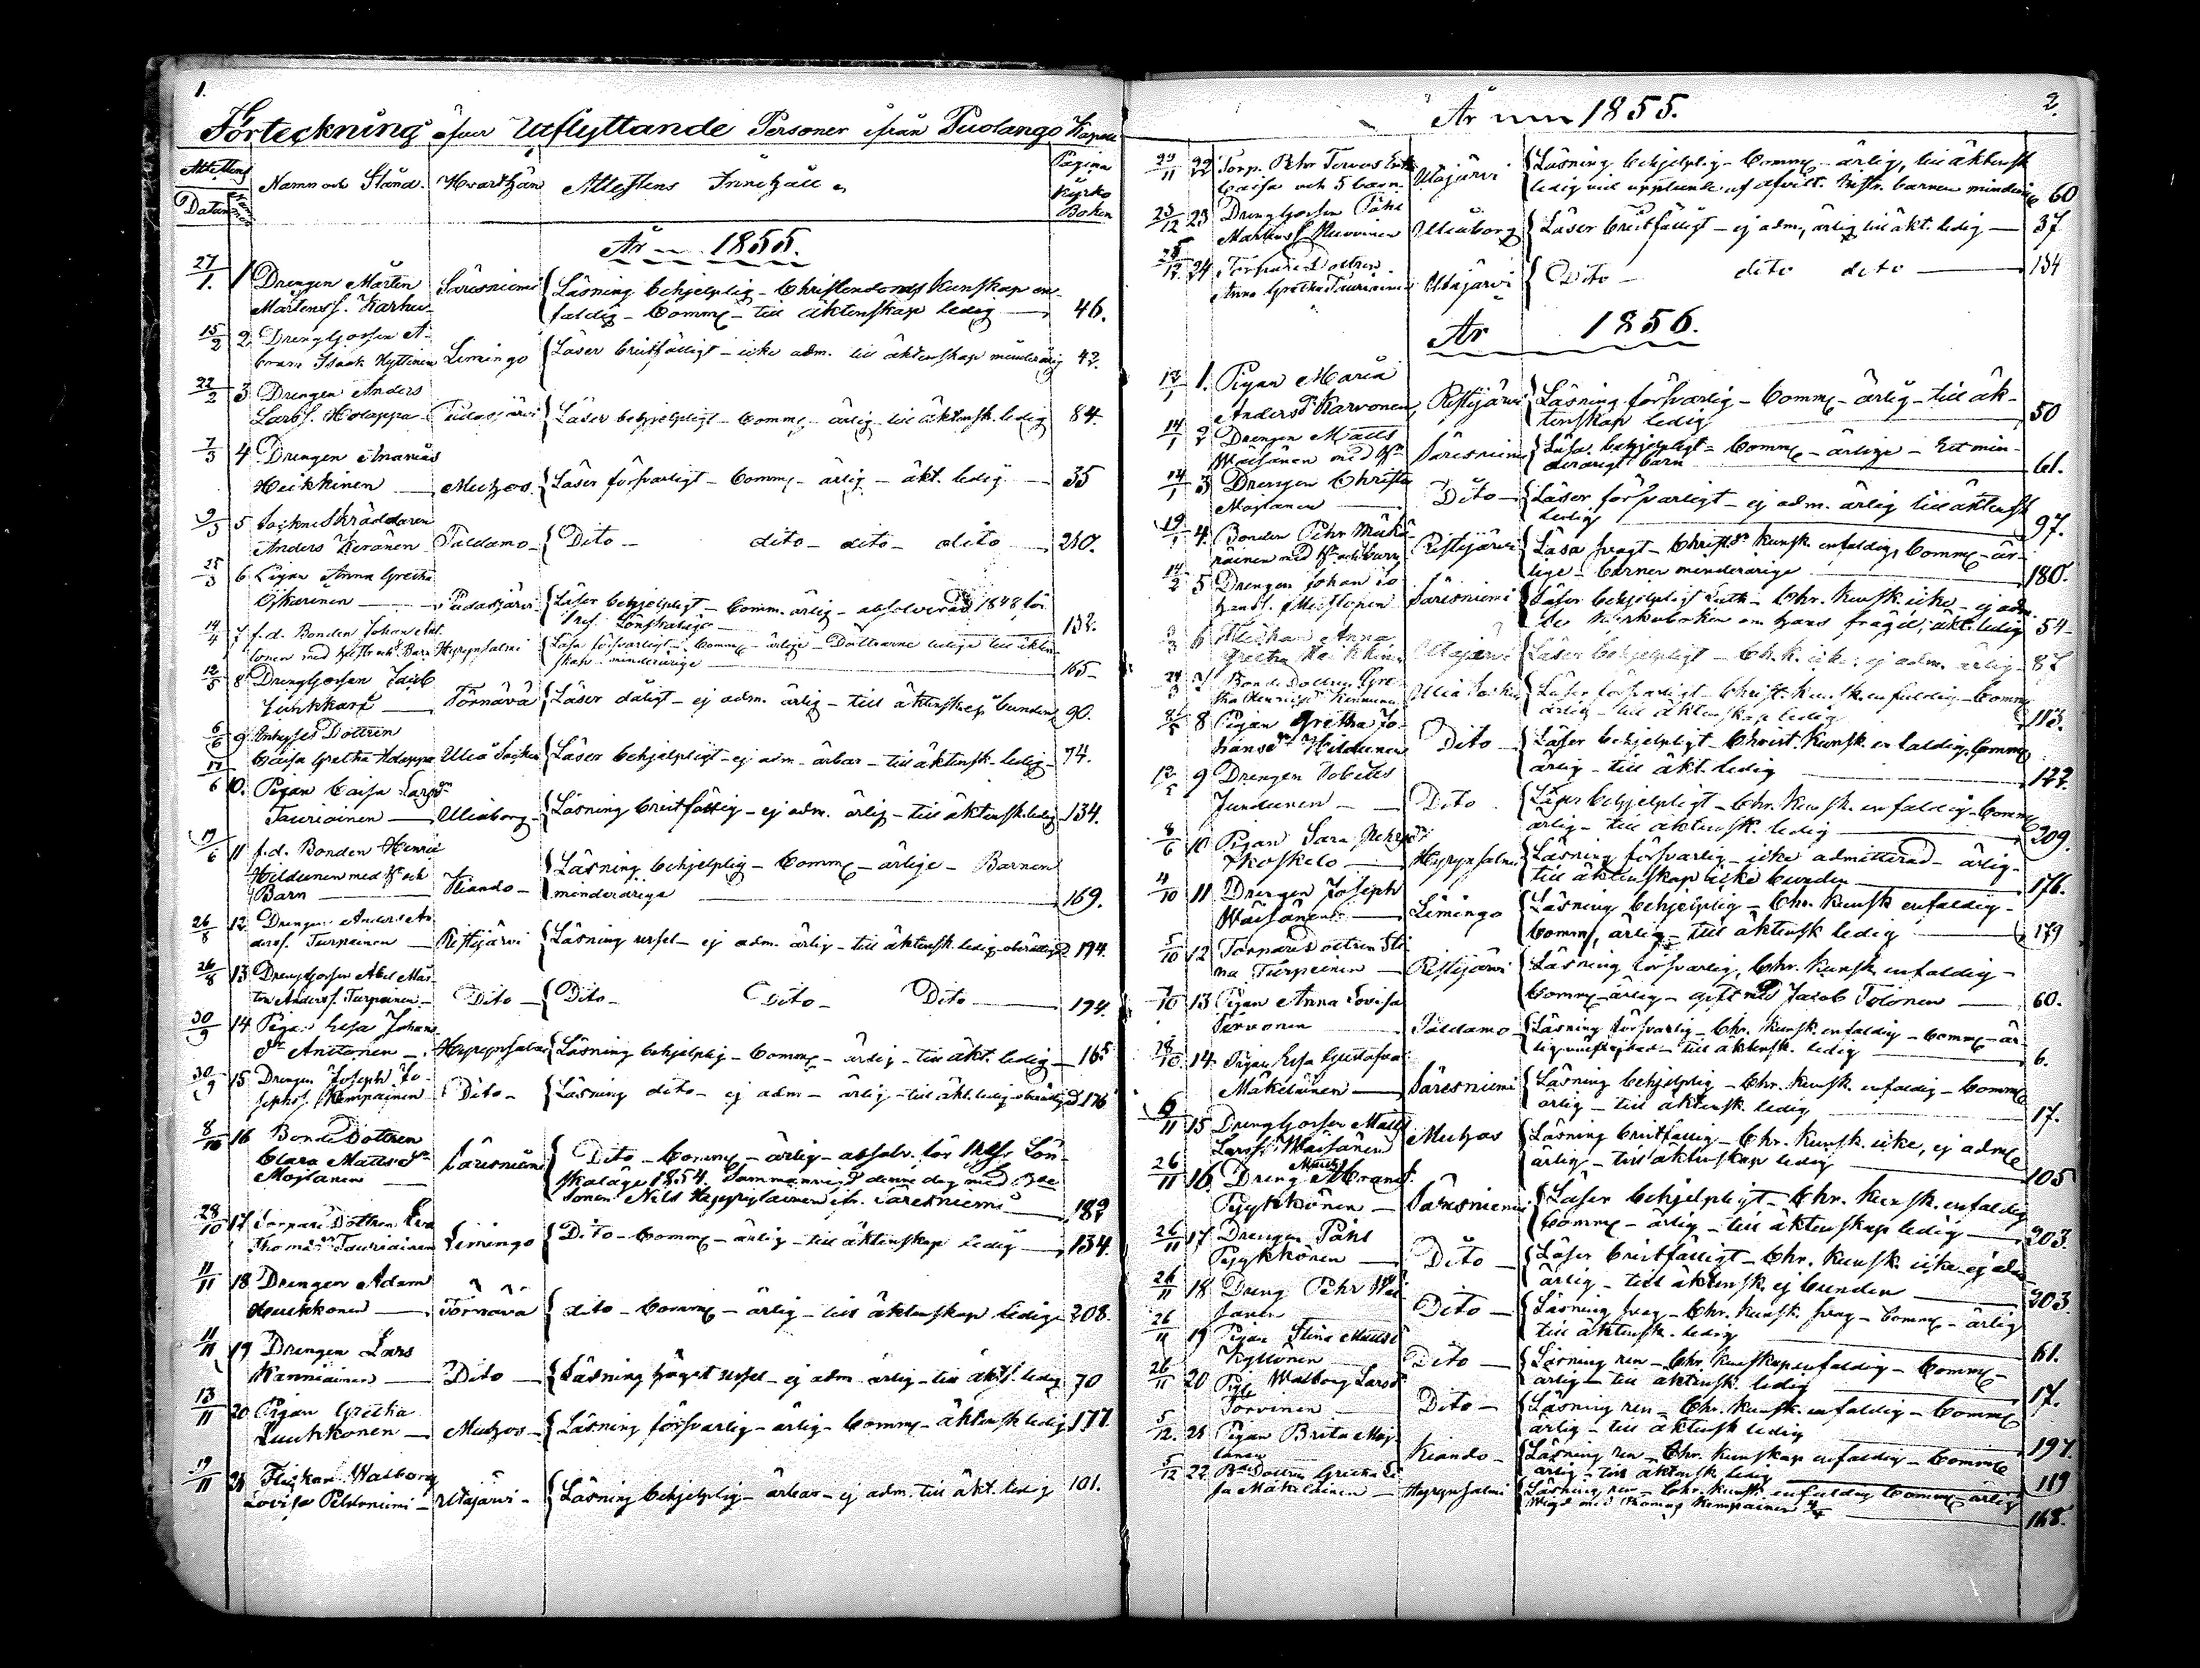 1.
Förteckning öfver Utflyttande Personer ifrån Puolango Kapell
Attestens
Datum
Namn och Stånd.
Hvarthän
Attestens Innehåll
Pagina i Kyrko Boken
År 1855.
27/1. 1 Drengen Mårten Säresniemi Läsning behjelplig - Christendoms Kunskap en-
Mårtenss. Karhu faldig - Comm. - till äktenskap ledig 46.
15/2 2 Drenggossen A- Limingo Läser bristfälligt - icke adm. till äktenskap minderårig 42.
bram Isaak Kyttinen
22/2 3 Drengen Anders
Larss. Holappa Pudasjärvi Läser behjelpligt - Comm. - ärlig - till äktensk. ledig 84.
7/3 4 Drengen Ananias
Heikkinen Muhos Läser försvarligt - Comm. - ärlig - äkt. ledig 35
9/3 5 Sockneskräddaren
Anders Keränen Paldamo Dito - dito - dito - dito 210.
25/3 6 Pigan Anna Greta
Pudasjärvi Läser behjelpligt - Comm. ärlig - absolverad 1848 för
resf. Lönskaläge 132.
14/4 7 f.d. Bonden Johan Ant-
tonen med Hustr. och Barn Hyrynsalmi Läsa försvarligt - Comm. - ärlige - Döttrarne lediga till äkten-
skap minderårige 165
12/5 8 Drenggossen Jacob
Törnävä Läser dåligt - ej adm. ärlig - till äktenskap bunden 90.
6/6 9 Inhyses Dottren
Caisa Gretha Holappa Uleå Socken Läser behjelpligt - ej adm. ärbar - till äktensk. ledig 74.
17/6 10. Pigan Caisa Larsdr
Tauriainen Uleåborg Läsning bristfällig - ej adm. ärlig - till äktensk. ledig 134.
19/6 11 f.d. Bonden Henric
Hildunen med Hu och Läsning behjelplig - Comm. - ärlige - Barnen
Barn Kiando minderåriga 169.
26/8 12 Drengen Anders An-
derss. Turpeinen Ristijärvi Läsning ussel - ej adm. ärlig - till äktensk. ledig oberättigad 194.
26/8 13 Drenggossen Abel Mår-
ten Anderss. Turpeinen Dito Dito Dito Dito 194.
30/9 14 Pigan Lisa Johans
dr Anttonen Hyrynsalmi Läsning behjelplig - Comm. - ärlig - till äkt. ledig 165
30/9 15 Drengen Joseph Jo-
sephs. Kemppainen Dito Läsning dito - ej adm - ärlig - till äkt. ledig oberättigad 176
8/10 16 Bonde Dottren
Clara Mattsdr Säresniemi Dito - Comm. - ärlig - absolv. för resf. Lön-
Mojlanen skaläge 1854. Sammanvigd denne dag med Bon-
Sonen Nils Säresniemi 182
28/10 17 Torpare Dottren Eva
Thomasdr Tauriainen Limingo Dito - Comm. - ärlig - till äktenskap ledig 134.
11/11 18 Drengen Adam
Luukkonen Törnävä dito - Comm. - ärlig - till äktenskap ledig 208.
11/11 19 Drengen Lars
Kanniainen Dito Läsning högst ussel - ej adm. ärlig - till äkts. ledig 70
13/11 20 Pigan Gretha
Luukkonen Muhos Läsning försvarlig - ärlig - Comm. - äktensk ledig 177.
19/11 21 Flickan Walborg
Lovisa Peltoniemi Utajärvi Läsning behjelplig - ärbar - ej adm. till äkt. ledig 101.
2.
År 1855.
29/11 22 Torp. Pehr Tervos Enka Utajärvi Läsning behjelplig - Comm. - ärlig, till äktensk
Caisa och 5 barn ledig barnen minderårige 60
23/12 23 Drenggossen Påhl
Martinss. Uleåborg Läser bristfälligt - ej adm, ärlig till äkt. ledig 37
24 Torpare Dottren
Anna Gretha Tauriainen Utajärvi Dito - dito dito 134
År 1856.
13/1 1. Pigan Maria
Andersdr Karvonen Ristijärvi Läsning försvarlig - Comm. - ärlig - till äk-
tenskap ledig 50
14/1 2 Drengen Matts
Wäisänen med Hu Säresniemi Läsa behjelpligt - Comm. - ärlige - Ett min-
derårigt barn 61.
14/1 3 Drengen Christer
Mojlanen Dito Läser försvarligt - ej adm. ärlig till äktensk
ledig 97.
19/1 4. Bonden Pehr
med Hu och barn Ristijärvi Läsa svagt - Christds Kunsk. enfaldig, Comm. - är-
lige - barnen minderårige 180.
14/2 5 Drengen Johan Jo-
hanss. Säresniemi Läser behjelpligt - Chr. Kunsk. icke - ej adm.
Se Kyrkoboken om hans frägd; äkt. ledig 54
6 Flickan Anna
Gretha Heikkinen Utajärvi Läser behjelpligt - Ch. K. icke, ej adm. ärlig 87
7 Bonde Dottren Gre-
tha Henricsdr Uleå Socken Läser försvarligt - Christ. kunsk. enfaldig - Comm.
ärlig - till äktenskap ledig 113.
8 Pigan Gretha Jo-
hansdr Hildunen Dito Läser behjelpligt - Christ. Kunsk. enfaldig, Comm.
ärlig - till äkt. ledig 122.
12/5 9 Drengen Tobias
Juntunen Dito Läser behjelpligt - Chr. Kunsk. enfaldig - Comm.
ärlig - till äktensk. ledig 209.
8/6 10 Pigan Sara Pehrsdr
Koskelo Hyrynsalmi Läsning försvarlig - icke admitterad - ärlig -
till äktenskap icke bunden 176.
4/10 11 Drengen Joseph
Wäisänen Limingo Läsning behjelplig - Chr. Kunsk enfaldig -
Comm, ärlig - till äktensk ledig 179
5/10 12 Torpare dottren Sti-
na Turpeinen Ristijärvi Läsning försvarlig, Chr. Kunsk. enfaldig -
Comm. ärlig - gift med Jacob Tolonen 60.
7/10 13 Pigan Anna Lovisa
Tervonen Paldamo Läsning försvarlig - Chr. Kunsk. enfaldig - Comm. - är-
lig - till äktensk. ledig 6.
28/10 14. Pigan Lisa Gustafsdr
Mäkeläinen Säresniemi Läsning behjelplig - Chr. Kunsk. enfaldig - Comm.
ärlig - till äktensk. ledig 17.
6/11 15 Drenggossen Matts
Larss. Wäisänen Muhos Läsning bristfällig - Chr. Kunsk. icke, ej adm.
ärlig - till äktenskap ledig 105
26/11 16. Dreng Matts
Pyykkönen Säresniemi Läser behjelpligt - Chr. Kunsk. enfaldig
Comm. - ärlig - till äktenskap ledig 203.
26/11 17 Drengen Påhl
Pyykkönen Dito Läser bristfälligt - Chr. Kunsk. icke - ej adm
ärlig - till äktensk. ej bunden 203.
26/11 18 Dreng Pehr Wäi-
sänen Dito Läsning svag - Chr. Kunsk. svag - Comm. - ärlig
till äktensk. ledig 61.
26/11 19 Pigan Stina Mattsdr
Kyllönen Dito Läsning ren - Chr. Kunskap enfaldig - Comm. -
ärlig - till äktensk. ledig 17.
26/11 20 Pig. Walborg Larsdr
Torvinen Dito Läsning ren - Chr. Kunsk. enfaldig - Comm.
ärlig - till äktensk ledig 197.
5/12. 21 Pigan Brita Moj-
lanen Kiando Läsning ren - Chr. Kunskap enfaldig - Comm.
ärlig - till äktensk ledig 119
5/12 22 Bde Dottren Gretha Li-
sa Mäkeläinen Hyrynsalmi Läsning ren - Chr. Kunsk enfaldig Comm. ärlig
Wigd med Thomas Kemppainen 168.